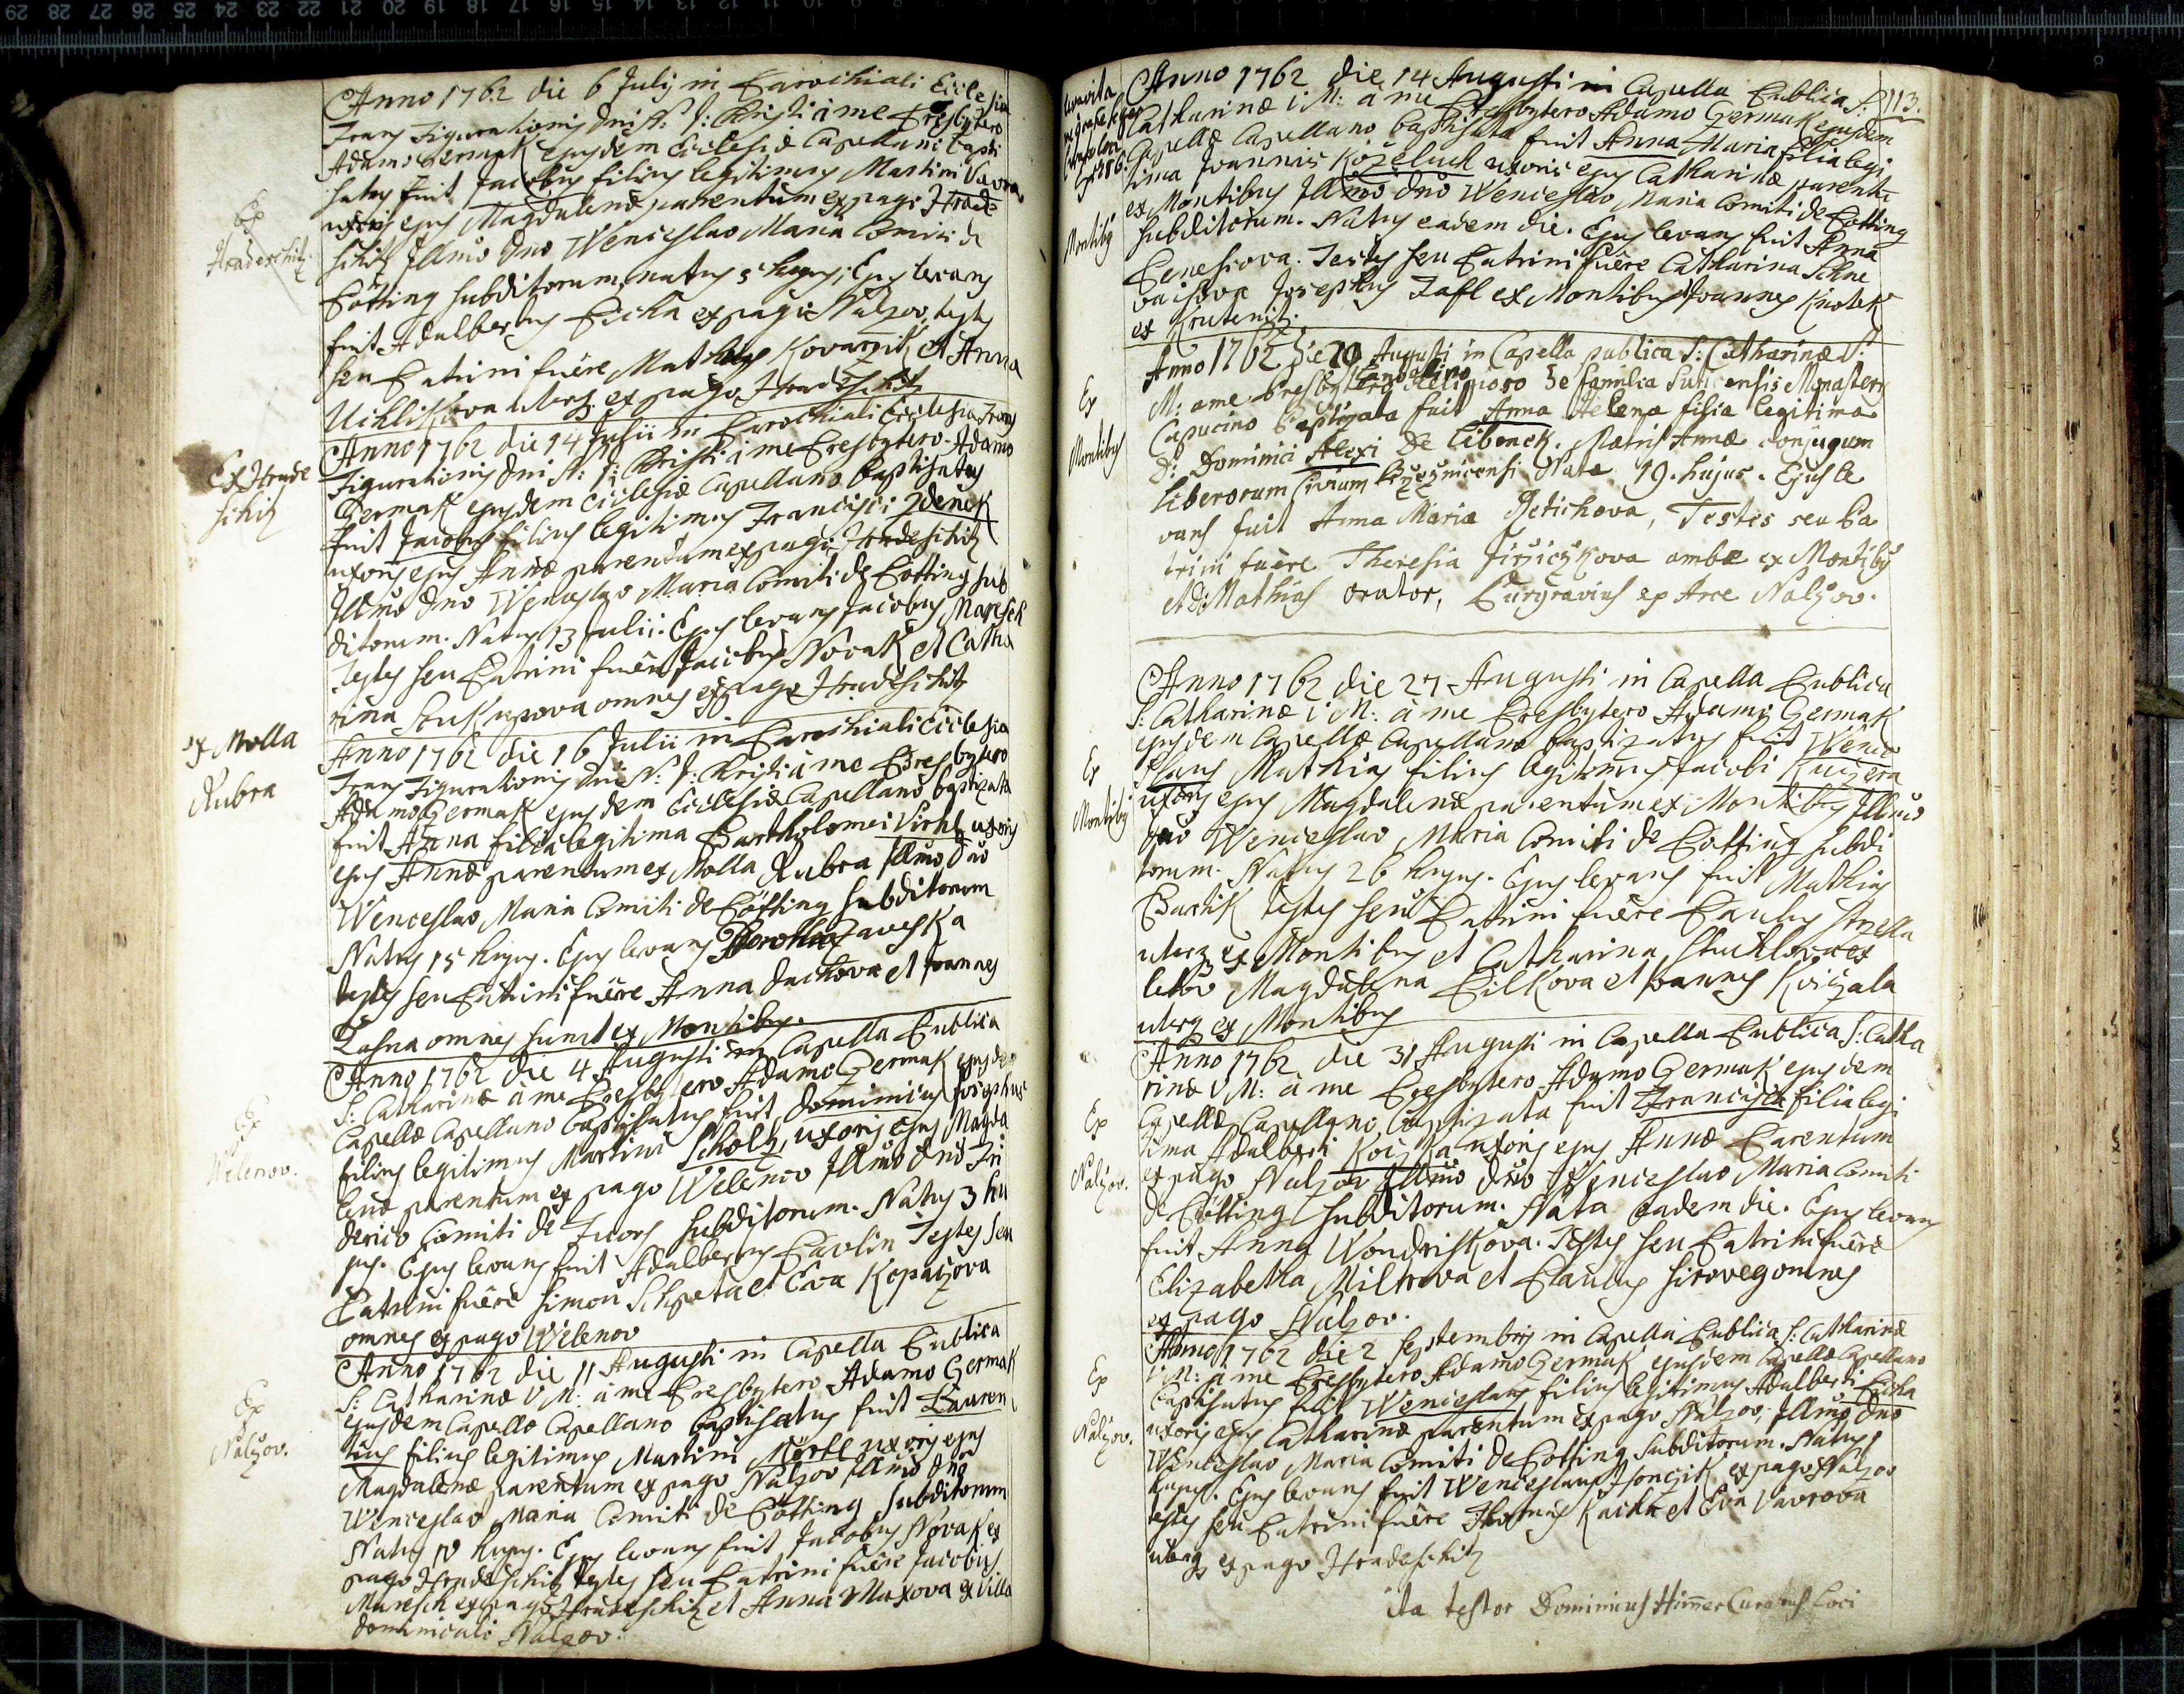 Anno 1762 die 6 Julij in Parochiali Ecclesia
Trans Figurationis Dni N: J: Christi à me Presbytero
Adamo Germak ejusdem Ecclesiæ Capellano bapti
satus fuit Jacobus filius legitimus Martini Vavra
uxoris ejus Magdalenæ parentum ex pago Hrade
schitz Illmo Dno Wenceslao Maria Comiti de
Pötting subditorum, natus 5 hujus; Ejus levans
fuit Adalbertus Picka ex pago Nalzov, testes
seu Patrini fuêre Mathias Kovarzik et Anna
uterq ex pago Hradeschitz
Ex
Hradeschitz
Anno 1762 die 14 Julii in Parochiali Ecclesia Trans
Figurationis Dni N: J: Christi à me Presbytero Adamo
Germak ejusdem Ecclesiæ Capellano baptisatus
fuit Jacobus filius legitimus Francisci Zdenek
uxoris ejus Annæ parentum ex pago Hradeschitz
Illmo Dno Wenceslao Maria Comiti de Pötting sub
ditorum. Natus 13 Julii. Ejus levans Jacobus Maresch
Testes seu Patrini fuêre Jacobus Novak et Catha
rina omnes ex pago Hradeschitz
Ex Hrade
schitz
Anno 1762 die 16 Julii in Parochiali Ecclesia
Trans Figurationis Dni N: J: Christi à me Presbytero
Adamo Germak ejusdem Ecclesiæ Capellano baptizata
fuit Anna filia legitima Bartholomei Virhl uxoris
ejus Annæ parentum ex Molla Rubra Illmo Dno
Wenceslao Maria Comiti de Pötting subditorum
Natus 15 hujus. Ejus levans Dorothea
testes seu Patrini fuêre Anna Dachova et Joannes
omnes sunt ex Montibus.
ex Molla
Rubra
Anno 1762 die 4 Augusti in Capella Publica
S: Catharinæ à me Presbytero Adamo Germak ejusdem
Capellæ Capellano baptisatus fuit Dominicus Josephus
filius legitimus Martini Scholtz uxoris ejus Magda
lenæ parentum ex pago Welenov Illmo Dno Fri
derico Comiti de subditorum. Natus 3 hu
jus. Ejus levans fuit Adalbertus Pavlin Testes seu
Patrini fuêre Simon Schpeta et Eva Kopatzova
omnes ex pago Welenov
Ex
Welenov.
Anno 1762 die 11 Augusti in Capella Publica
S: Catharinæ V M: à me Presbytero Adamo Germak
ejusdem Capellæ Capellano baptisatus fuit Lauren
tius filius legitimus Martini Mörtl uxoris ejus
Magdalenæ parentum ex pago Nalzov Illmo Dno
Wenceslao Maria Comiti de Pötting subditorum
Natus 10 hujus. Ejus levans fuit Jacobus Novak ex
pago Hradeschitz testes seu Patrini fuêre Jacobus
Maresch ex pago Hradeschitz et Anna Maxova ex Villa
Dominicali Nalzov.
Ex
Nalzov.
113.
Anno 1762 die 14 Augusti in Capella Publica S:
Catharinæ V: M: à me Presbytero Adamo Germak ejusdem
Capellæ Capellano baptisata fuit Anna Maria filia legi
tima Joannis Koželuch uxoris ejus Catharinæ parentū
ex Montibus Illmo Dno Wenceslao Maria Comiti de Potting
subditorum. Natus eadem die. Ejus levans fuit Anna
Benesiova. Testes seu Patrini fuêre Catharina
Josephus Tafl ex Montibus Joannes Knotek
ex
Montibus
Anno 1762 Die 20 Augusti in Capella publica S: Catharinæ V:
M: a me Presbytero Religioso de familia Suticensis Monasterij
Capucino baptizata fuit Anna Helena filia legitima
D: Dominici Alexi De Libenck. Matris Annæ conjugum
liberorum Civium Nata 19. hujus. Ejus le
vans fuit Anna Maria Testes seu Pa
trini fuêre Theresia ambæ ex Montibus
et D: Mathias Orator, Burgravius ex Arce Nalzov.
Ex
Montibus
Anno 1762 die 27 Augusti in Capella Publica
S: Catharinæ V M: à me Presbytero Adamo Germak
ejusdem Capellæ Capellano baptizatus fuit Wence
slaus Mathias filius legitimus Jacobi Kuczera
uxoris ejus Magdalenæ parentum ex Montibus Illmo
Dno Wenceslao Maria Comiti de Potting subdi
torum. Natus 26 hujus. Ejus levans fuit Mathias
Bartik testes seu Patrini fuêre Paulus Strzella
uterq ex Montibus et Catharina ex
Magdalena Pilkova et Joannes Kviczala
uterq ex Montibus
Ex
Montibus
Anno 1762 die 31 Augusti in Capella Publica S: Catha
rinæ V M: à me Presbytero Adamo Germak ejusdem
Capellæ Capellano baptizata fuit Francisca filia legi
tima Adalberti uxoris ejus Annæ Parentum
ex pago Nalzov Illmo Dno Wenceslao Maria Comiti
de Pötting subditorum. Nata eadem die. Ejus levans
fuit Anna Wondrischkova. Testes seu Patrini fuêre
Elizabetha Miltrova et Paulus omnes
ex pago Nalzov.
Ex
Nalzov.
Anno 1762 die 2 Septembris in Capella Publica S: Catharinæ
V M: à me Presbytero Adamo Germak ejusdem Capellæ Capellano
baptisatus fuit Wenceslaus filius legitimus Adalberti Picka
uxoris ejus Catharinæ parentum ex pago Nalzov, Illmo Dno
Wenceslao Maria Comiti de Potting subditorum. Natus 1
hujus. Ejus levans fuit Wenceslaus ex pago Nalzov
testes seu Patrini fuêre Thomas Kacha et Eva Vavrova
uterq ex pago Hradeschitz
Ex
Nalzov.
ita testor Dominicus Himer Curatus Loci